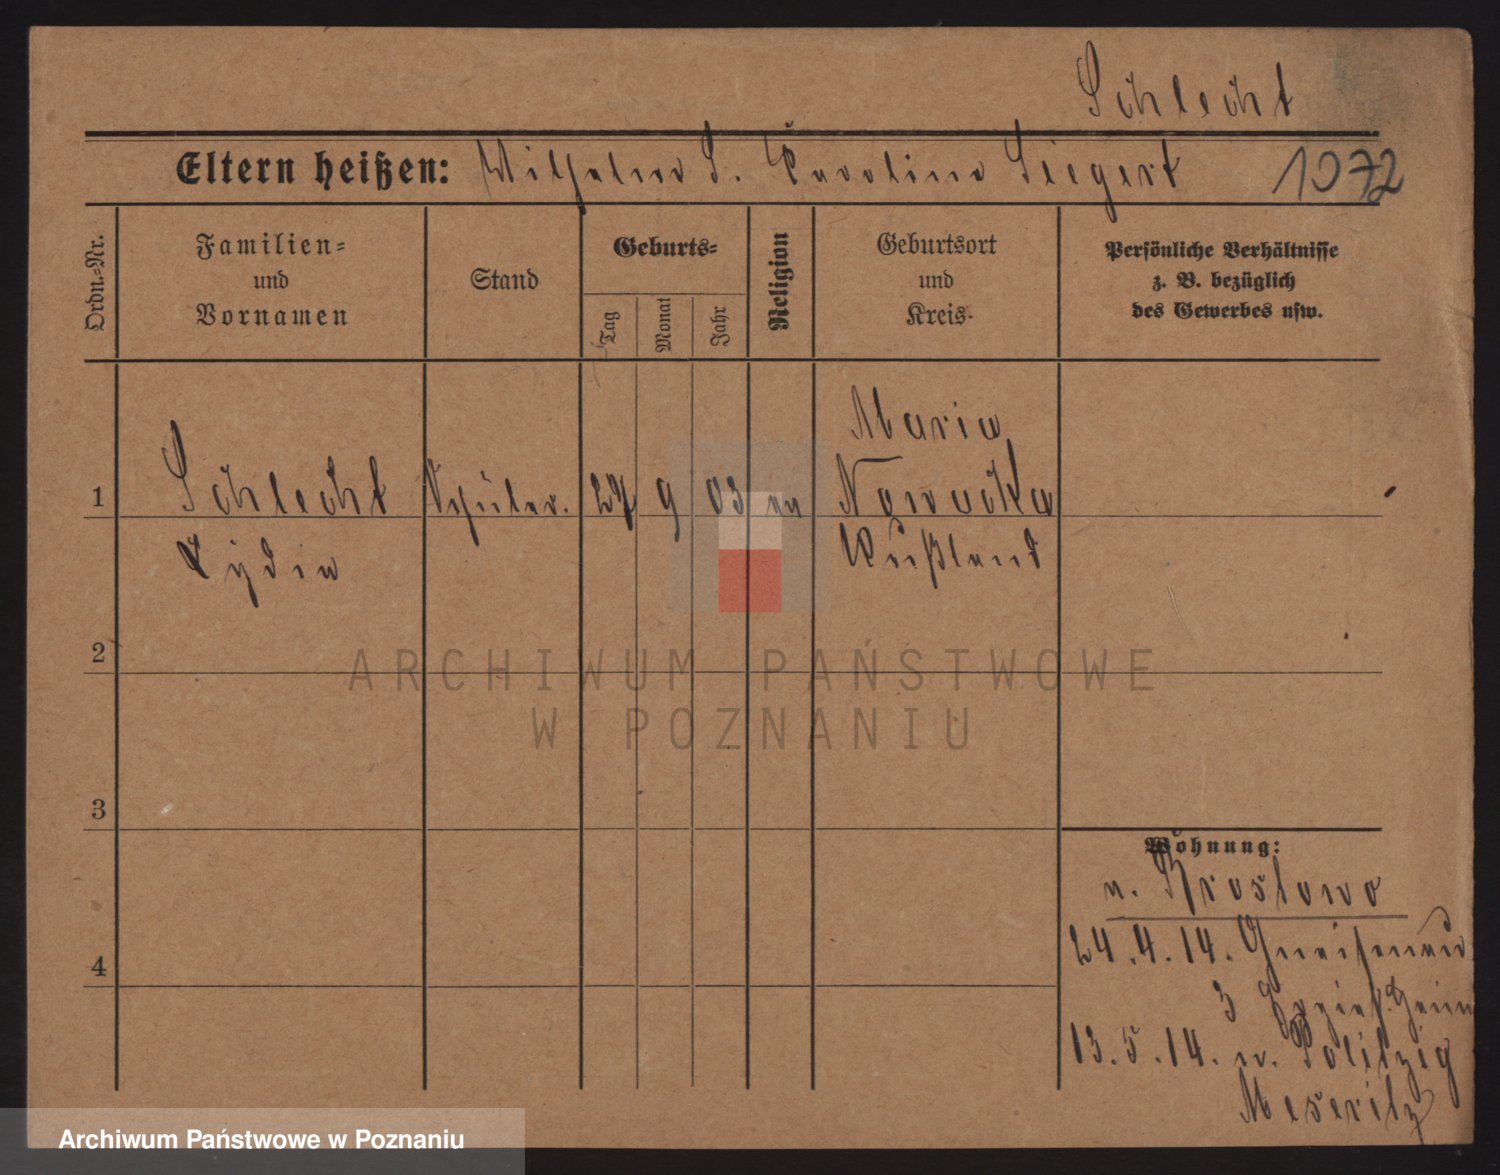 Schlecht
Eltern heißen: Wilhelm S. Karoline Siegert 1072
Ordn.-Nr.
Familien-
und
Vornamen
Stand
Geburts-
Tag
Monat
Jahr
Religion
Geburtsort
und
Kreis.
Persönliche Verhältnisse
z. B. bezüglich
des Gewerbes usw.
Maria
1 Schlecht Schüler. 27 9 03 Nowacka
Lydia Rußland
2
3
4
Wohnung:
n. Broslowo
24.4.14. Gneisenau
3 Erzieh. Heim
13.5.14. n. Politzig
Meseritz
ARCHIWUM PAŃSTWOWE
W POZNANIU
Archiwum Państwowe w Poznaniu